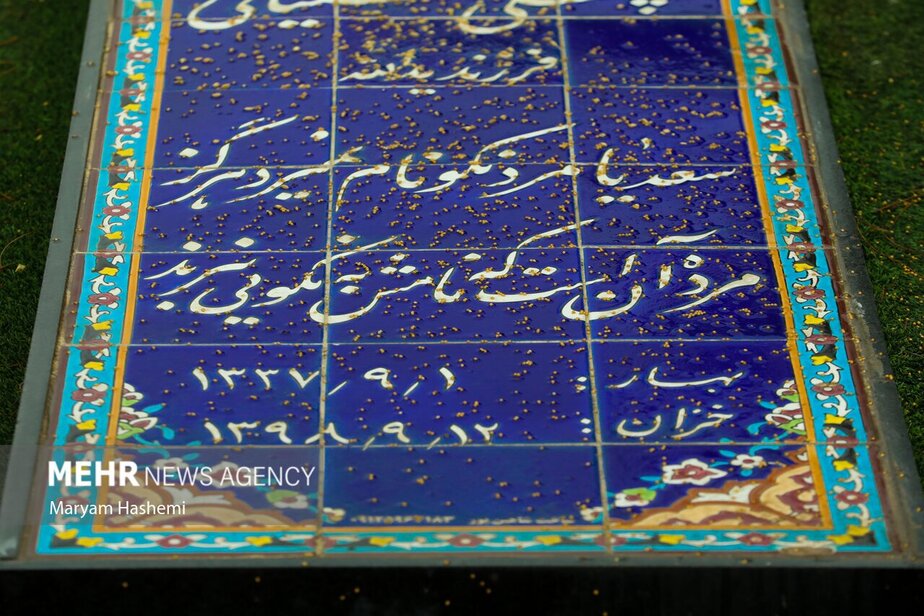 فرزند یدالله
سعدیا مرد نکونام نمیرد هرگز
مرده آن است که نامش به نکویی نبرند
بهار : ۱۳۳۷/۹/۱
خزان : ۱۳۹۸/۹/۱۲
MEHR NEWS AGENCY
Maryam Hashemi